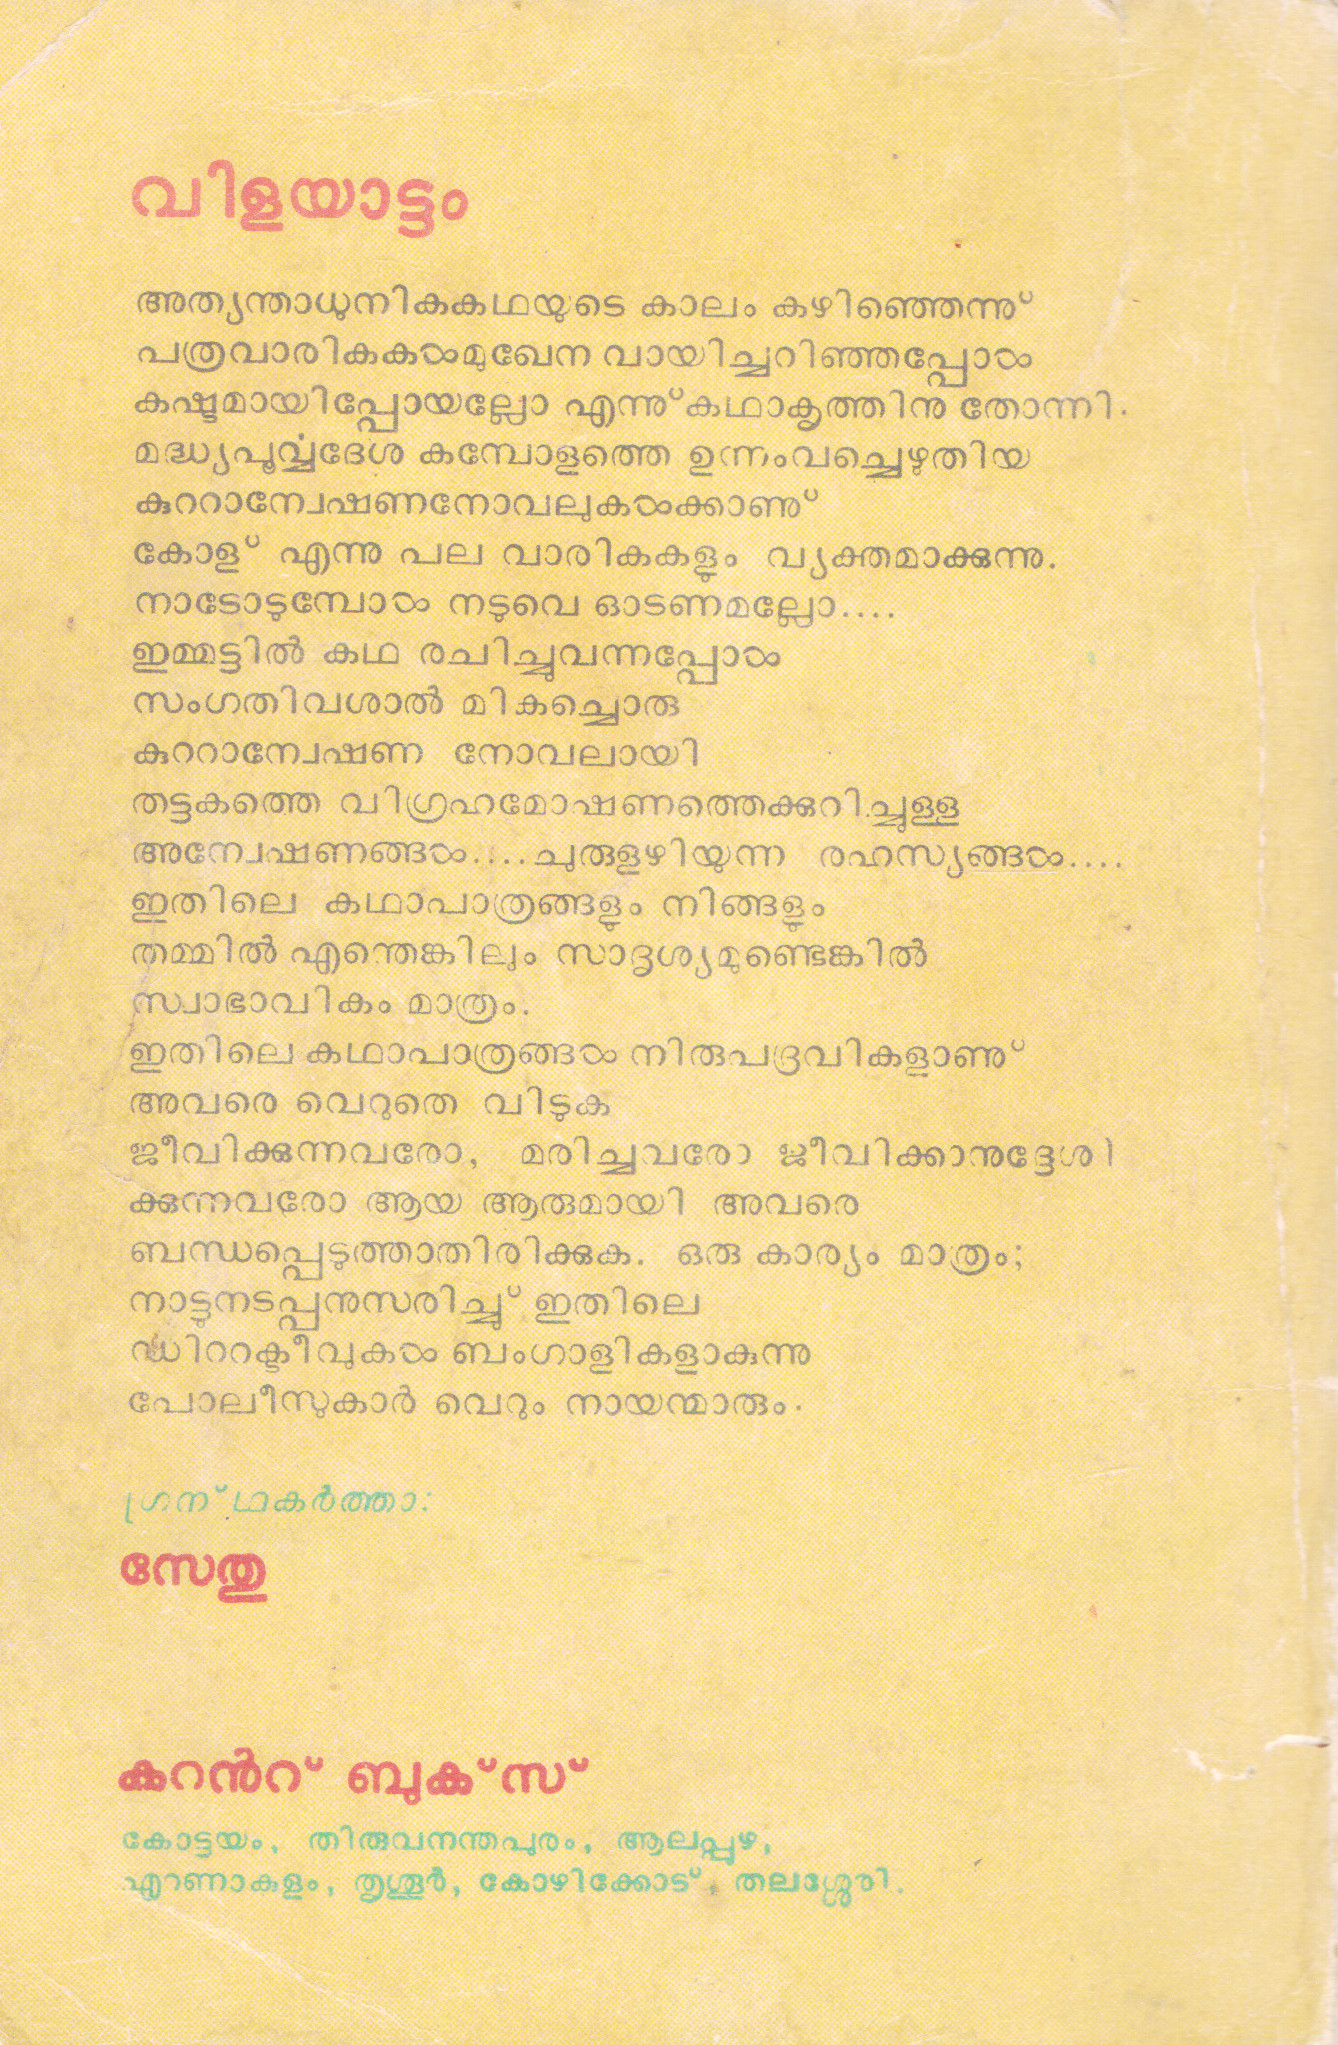 വിളയാട്ടം
അത്യന്താധുനികകഥയുടെ കാലം കഴിഞ്ഞെന്നു്
പത്രവാരികകൾമുഖേന വായിച്ചറിഞ്ഞപ്പോൾ
കഷ്ടമായിപ്പോയല്ലോ എന്നു് കഥാകൃത്തിനു തോന്നി.
മദ്ധ്യപൂർവ്വദേശ കമ്പോളത്തെ ഉന്നംവച്ചെഴുതിയ
കുററാന്വേഷണനോവലുകൾക്കാണു്
കോളു് എന്നു പല വാരികകളും വ്യക്തമാക്കുന്നു.
നാടോടുമ്പോൾ നടുവെ ഓടണമല്ലോ....
ഇമ്മട്ടിൽ കഥ രചിച്ചുവന്നപ്പോൾ
സംഗതിവശാൽ മികച്ചൊരു
കുററാന്വേഷണ നോവലായി
തട്ടകത്തെ വിഗ്രഹമോഷണത്തെക്കുറിച്ചുള്ള
അന്വേഷണങ്ങൾ....ചുരുളഴിയുന്ന രഹസ്യങ്ങൾ....
ഇതിലെ കഥാപാത്രങ്ങളും നിങ്ങളും
തമ്മിൽ എന്തെങ്കിലും സാദൃശ്യമുണ്ടെങ്കിൽ
സ്വാഭാവികം മാത്രം.
ഇതിലെ കഥാപാത്രങ്ങൾ നിരുപദ്രവികളാണു്
അവരെ വെറുതെ വിടുക
ജീവിക്കുന്നവരോ, മരിച്ചവരോ ജീവിക്കാനുദ്ദേശി
ക്കുന്നവരോ ആയ ആരുമായി അവരെ
ബന്ധപ്പെടുത്താതിരിക്കുക. ഒരു കാര്യം മാത്രം;
നാട്ടുനടപ്പനുസരിച്ചു് ഇതിലെ
ഡിററക്ടീവുകൾ ബംഗാളികളാകുന്നു
പോലീസുകാർ വെറും നായന്മാരും.
ഗ്രന്ഥകർത്താ:
സേതു
കറൻറ് ബുക്സ്
കോട്ടയം, തിരുവനന്തപുരം, ആലപ്പുഴ,
എറണാകുളം, തൃശൂർ, കോഴിക്കോട്, തലശ്ശേരി.